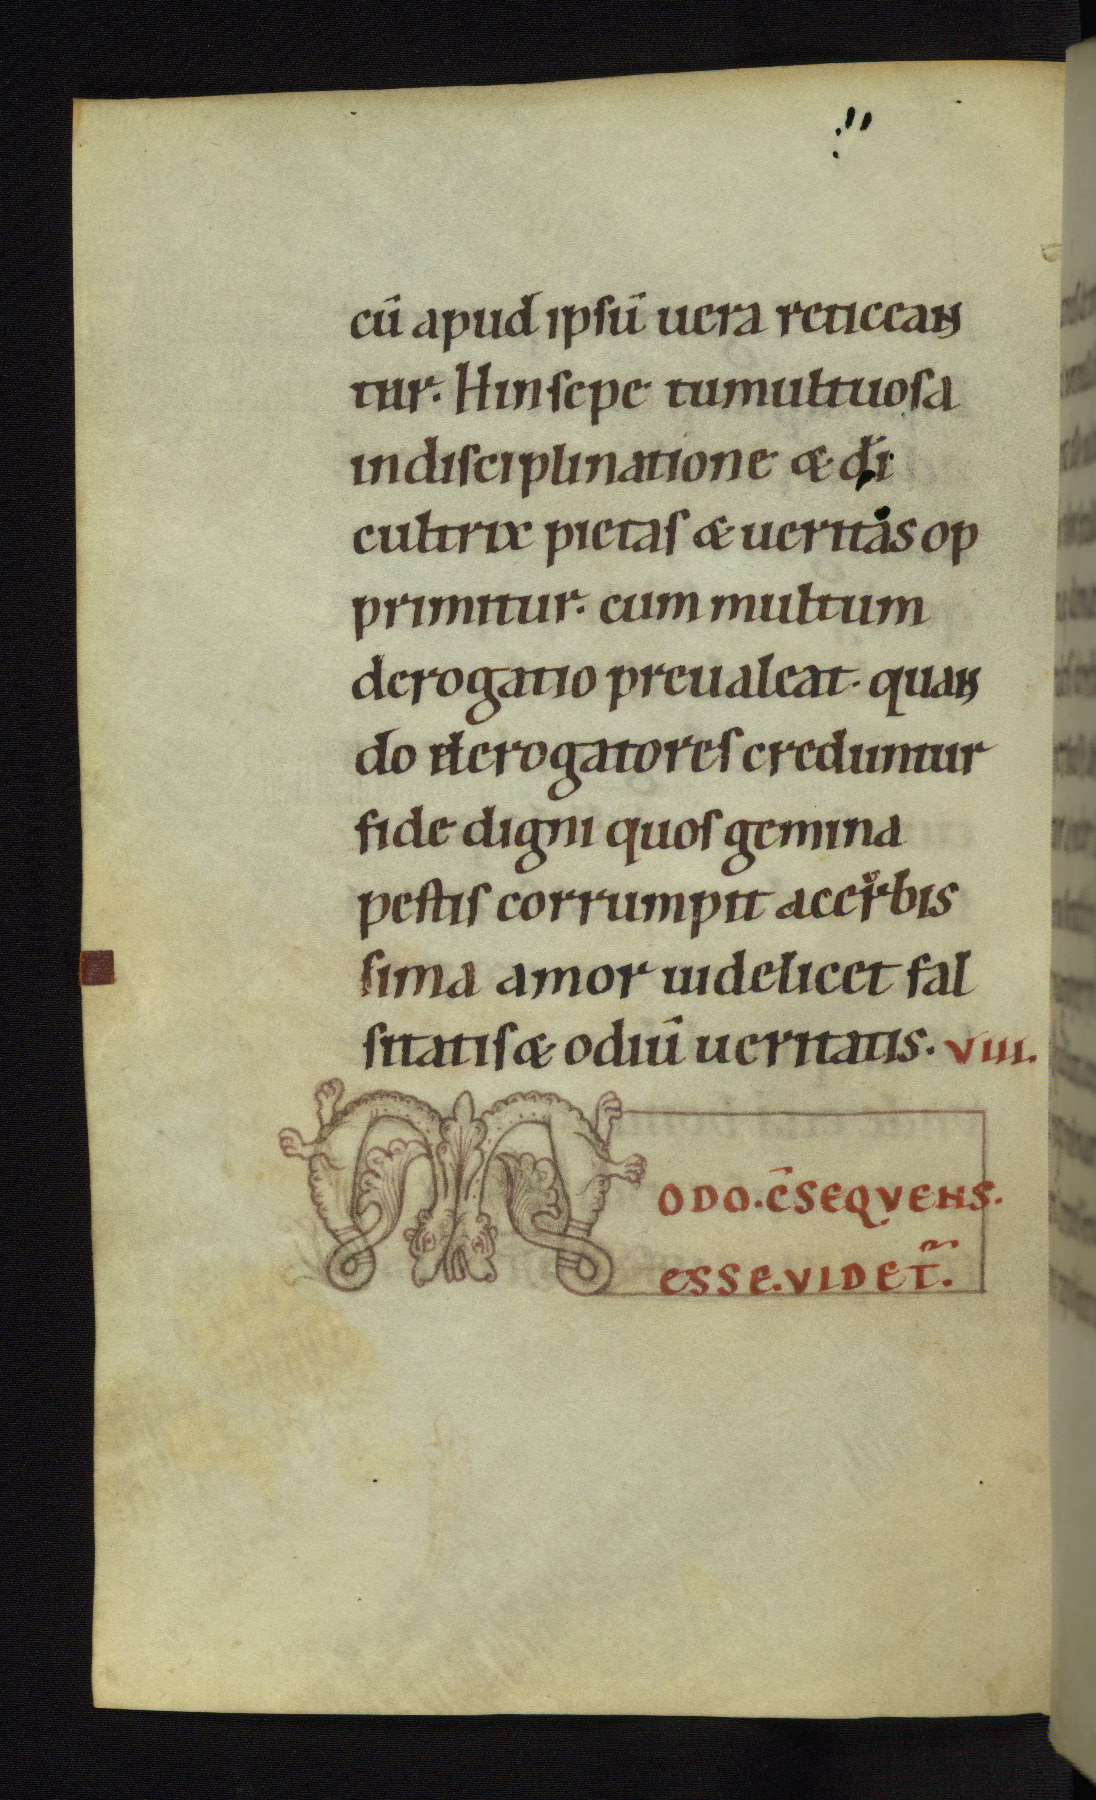 cū apud ipsū uera reticean
tur. Hin sepe tumultuosa
indisciplinatione & dī
cultrix pietas & ueritas op
primitur. cum multum
derogatio preualeat. quan
do derogatores creduntur
fide digni quos gemina
pestis corrumpit acerbis
sima amor uidelicet fal
sitatis & odiū ueritatis. VIII.
MODO. C̄SEQVENS.
ESSE. VIDET̃.